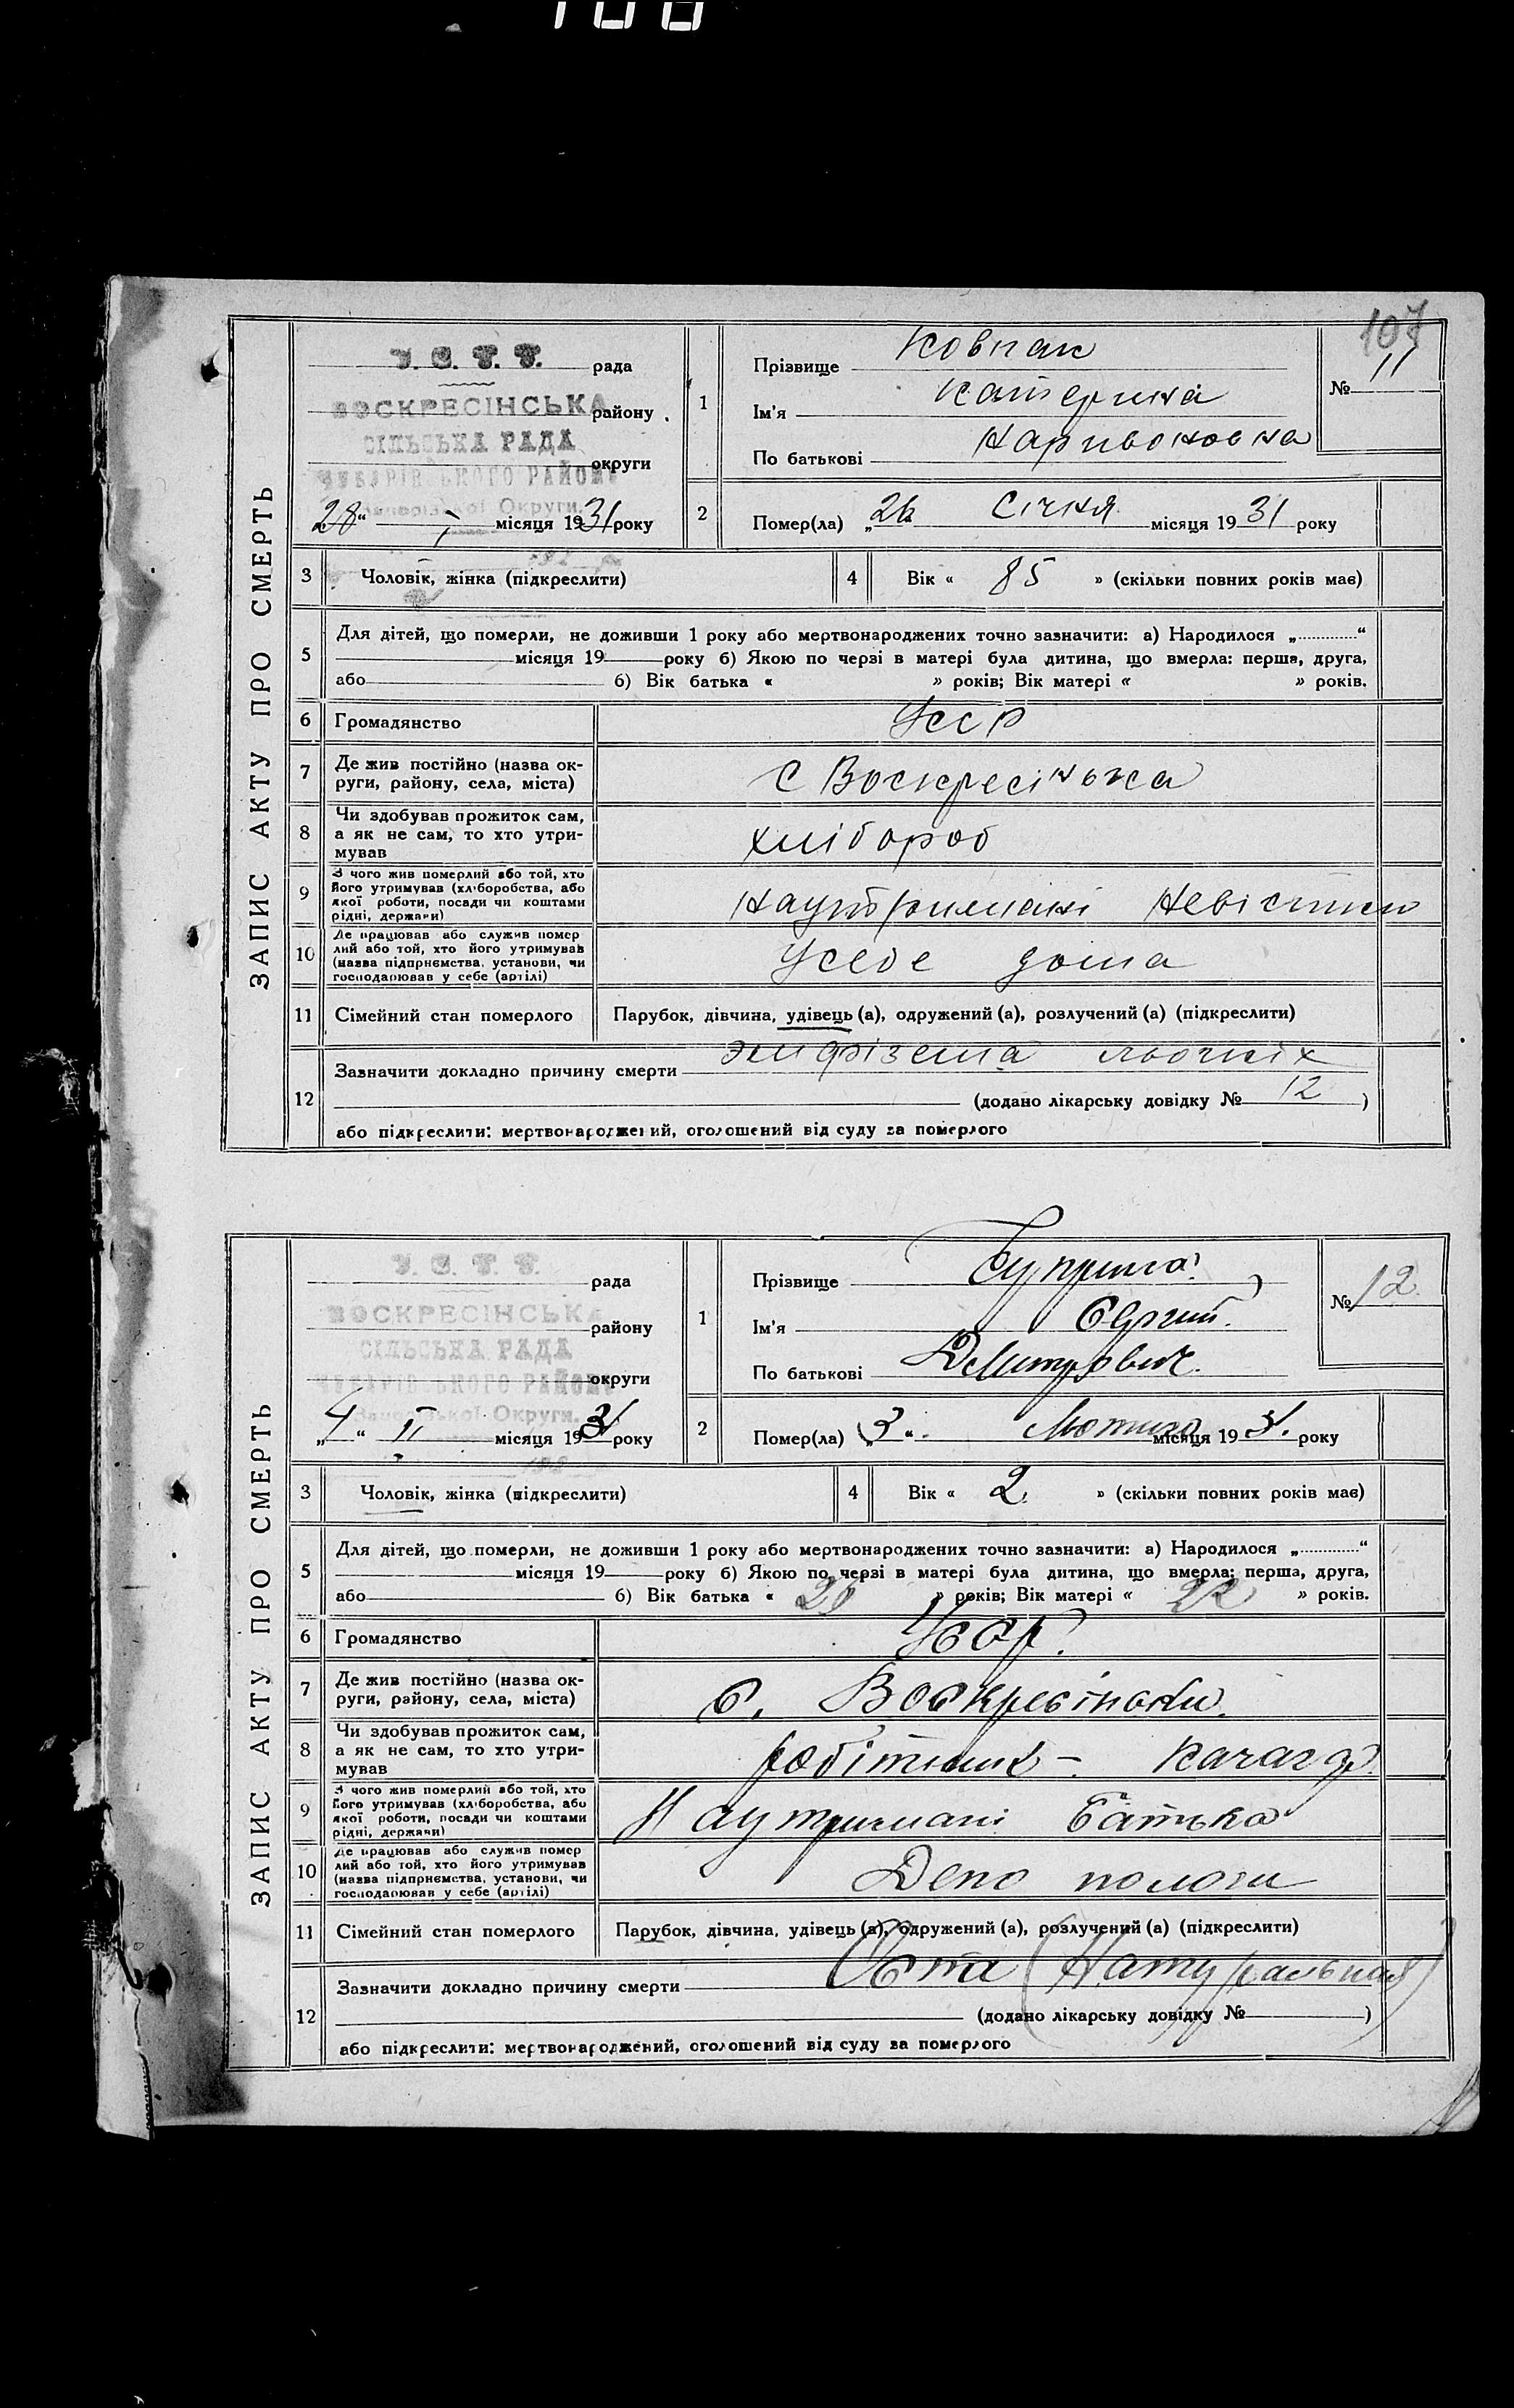 107
ЗАПИС АКТУ ПРО СМЕРТЬ
У. С. Т. Т. рада
ВОСКРЕСІНСЬКА району
СІЛЬСЬКА РАДА
ЧУБАРІВСЬКОГО РАЙОНУ округи
Запорізької Округи.
„28“ I місяця 1931 року
1
Прізвище Ковпак
Ім'я Катерина
По батькові
№ 11
2
Помер(ла) „26 Січня місяця 1931 року
3
Чоловік, жінка (підкреслити)
4
Вік « 85 » (скільки повних років має)
5
Для дітей, що померли, не доживши 1 року або мертвонароджених точно зазначити: а) Народилося „............“
місяця 19 року б) Якою по черзі в матері була дитина, що вмерла: перша, друга,
або б) Вік батька « » років; Вік матері « » років.
6
Громадянство Усср
7
Де жив постійно (назва ок-
руги, району, села, міста)
С Воскресінька
8
Чи здобував прожиток сам,
а як не сам, то хто утри-
мував
хлібороб
9
З чого жив померлий або той, хто
його утримував (хліборобства, або
якої роботи, посади чи коштами
рідні, держави)
Наутрiманi Невістки
10
Де працював або служив помер
лий або той, хто його утримував
(назва підприємства, установи, чи
господарював у себе (артілі)
Усебе дома
11
Сімейний стан померлого
Парубок, дівчина, удівець (а), одружений (а), розлучений (а) (підкреслити)
12
Зазначити докладно причину смерти эмфізема льогких
(додано лікарську довідку № 12 )
або підкреслити: мертвонароджений, оголошений від суду за померлого
ЗАПИС АКТУ ПРО СМЕРТЬ
У. С. Т. Т. рада
ВОСКРЕСІНСЬКА району
СІЛЬСЬКА РАДА
ЧУБАРІВСЬКОГО РАЙОНУ округи
Запорізької Округи.
„4“ II місяця 1931 року
1
Прізвище
Ім'я Сергий.
По батькові Дмитрович.
№ 12
2
Помер(ла) „3“ Лютого місяця 1931. року
3
Чоловік, жінка (підкреслити)
4
Вік « 2 » (скільки повних років має)
5
Для дітей, що померли, не доживши 1 року або мертвонароджених точно зазначити: а) Народилося „............“
місяця 19 року б) Якою по черзі в матері була дитина, що вмерла: перша, друга,
або б) Вік батька « » років; Вік матері « 22 » років.
6
Громадянство Усср.
7
Де жив постійно (назва ок-
руги, району, села, міста)
с. Воскресіньки.
8
Чи здобував прожиток сам,
а як не сам, то хто утри-
мував
робітник – качагар.
9
З чого жив померлий або той, хто
його утримував (хліборобства, або
якої роботи, посади чи коштами
рідні, держави)
Наутримані Батька
10
Де працював або служив помер
лий або той, хто його утримував
(назва підприємства, установи, чи
господарював у себе (артілі)
Депо пологи
11
Сімейний стан померлого
Парубок, дівчина, удівець (а), одружений (а), розлучений (а) (підкреслити)
12
Зазначити докладно причину смерти Оспа (Натуральная)
(додано лікарську довідку № )
або підкреслити: мертвонароджений, оголошений від суду за померлого